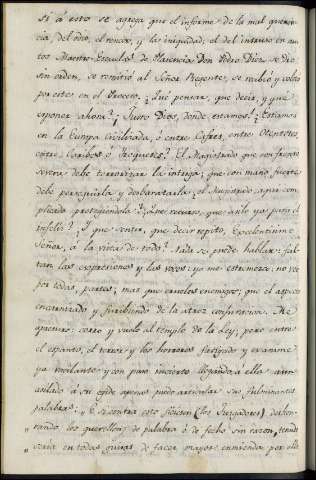 si á esto se agrega que el informe de la mal querencia,
del odio, el rencor, y la iniquidad; el del intruso en au-
tos Maestre-Escuelas de Plasencia Don Pedro Diez se dio
sin orden, se remitió al Señor Regente, se recibió y colocó
por estos en el Proceso. ¿Qué pensar, que decir, y qué
exponer ahora? ¡Justo Dios, donde estamos! ¿Estamos
en la Europa Civilizada, ó entre Cafres, entre Otentotes,
entre Caribes ó Iroqueses? El Magistrado que con frente
serena debe terrorizar la intriga; que con mano fuerte
debe perseguirla y desbaratarla; ¡el Magistrado aquí com-
plicado protegiéndola! ¿Qué recurso, qué asilo ya para el
infeliz? ¿Y que sentir, que decir repito, Excelentísimo
Señor, á la vista de todo? Nada se puede hablar: fal-
tan las expresiones y las voces: yo me estremezco: no veo
por todas partes, mas que crueles enemigos; que el aspecto
encarnizado y furibundo de la atroz conjuración. Me
apresuro: corro y vuelo al templo de la Ley; pero entre
el espanto, el terror y los horrores fatigado y exanime
ya vacilante y con paso incierto llegando á ella
asilado á su egide apenas puedo articular sus fulminantes
palabras: „ E si contra esto ficiesen (los Juzgadores) deshon-
„ rando los querellosos de palabra ó de fecho sin razon, tenudos
„ seria en todas guisas de facer mayor enmienda por ello